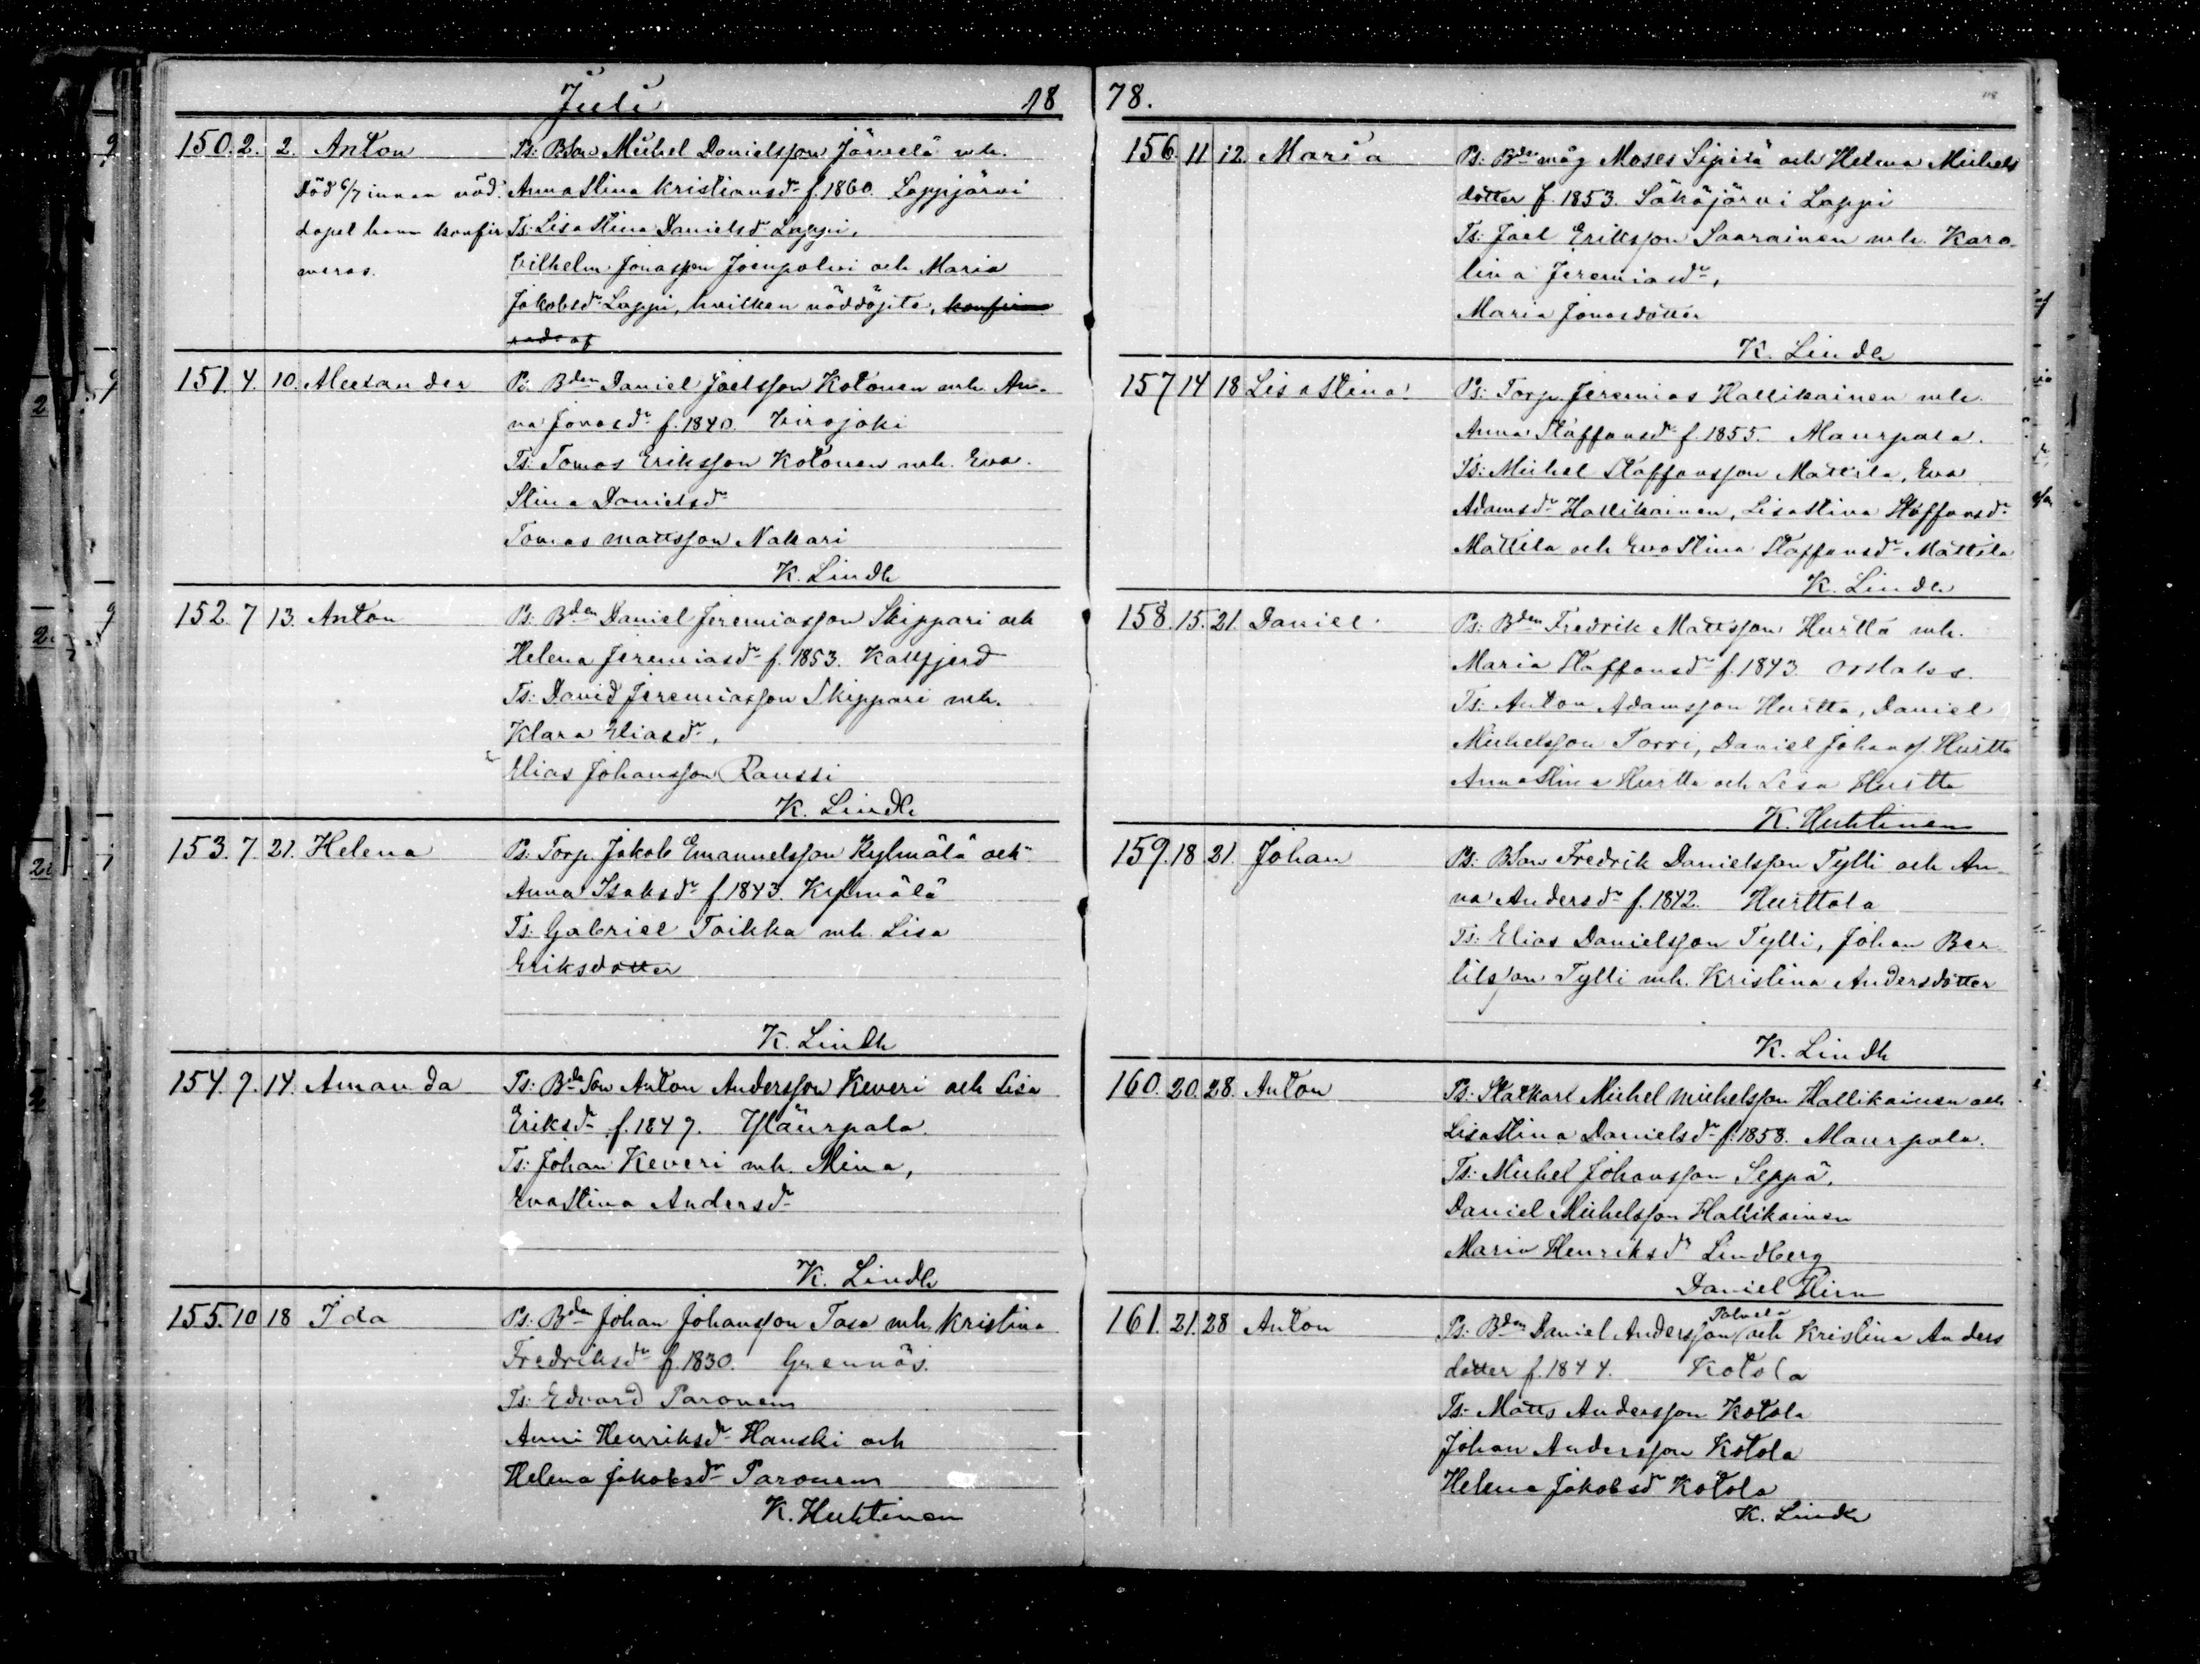 Juli 1878.
150. 2. 2. Anton Ps: BSon Michel Danielsson Järvelä mh.
Död 6/7 innan nöd- Annastina Kristiansdr f. 1860. Lappjärvi
dopet hann konfir Ts: Lisastina Danielsdr Lappi,
meras. Vilhelm Jonasson Joenpolvi och Maria
Jakobsdr Lappi, hvilken nöddöpte, konfirme
rade af
151. 4. 10. Alexander Ps: Bden Daniel Joelsson Kotonen mh. An-
na Jonasdr f. 1840. Virojoki
Ts: Tomas Eriksson Kotonen mh. Eva
Stina Danielsdr
Tomas Mattsson Nakari
K. Lindh
152. 7 13. Anton Ps: Bden Daniel Jeremiasson Skippari och
Helena Jeremiasdr f. 1853. Kallfjerd
Ts: David Jeremiasson Skippari mh.
Klara Eliasdr,
Elias Johansson Ranssi
K. Lindh
153. 7. 21. Helena Ps: Torp. Jakob Emanuelsson Kylmälä och
Anna Isaksdr f. 1843. Kylmälä
Ts: Gabriel Toikka mh. Lisa
Eriksdotter
K. Lindh
154. 9. 14. Amanda Ts: Bde Son Anton Andersson Keveri och Lisa
Eriksdr f. 1849. Pläurpala
Ts: Johan Keveri mh. Mina,
Evastina Andersdr
K. Lindh
155. 10 18 Ida Ps: Bden Johan Johansson Tasa mh. Kristina
Fredriksdr f. 1830. Grennäs.
Ts: Edvard Paronen
Anni Henriksdr Hanski och
Helena Jakobsdr Paronen
K. Huhtinen
156. 11 12. Maria Ps: Bdemåg Moses Sipilä och Helena Michels
dotter f. 1853. Säkäjärvi Lappi
Ts: Joel Eriksson Saarainen mh. Karo-
lina Jeremiasdr,
Maria Jonasdotter
K. Lindh
157 14 18 Lisastina Ps: Torp. Jeremias Hallikainen mh.
Anna Staffansdr f. 1855. Maurpala.
Ts: Michel Staffansson Mattila, Eva
Adamsdr Hallikainen, Lisastina Staffansdr
Mattila och Evastina Staffansdr Mattila
K. Lindh
158. 15. 21. Daniel Ps: Bden Fredrik Mattsson Hurtta mh.
Maria Staffansdr f. 1843.
Ts: Anton Adamsson Hurtta, Daniel
Michelsson Torri, Daniel Johanss. Hurtta
Annastina Hurtta och Lisa Hurtta
K. Huhtinen
159. 18 21. Johan Ps: BSon Fredrik Danielsson Tylli och An-
na Andersdr f. 1842. Hurttala
Ts: Elias Danielsson Tylli, Johan Ber-
tilsson Tylli mh. Kristina Andersdotter
K. Lindh
160. 20. 28. Anton Ps: Statkarl Michel Michelsson Hallikainen och
Lisastina Danielsdr f. 1858. Maurpala.
Ts: Michel Johansson Seppä,
Daniel Michelsson Hallikainen
Maria Henriksdr Lindberg
Daniel Hirn
161. 21. 28 Anton Ps: Bden Daniel Andersson Polvela och Kristina Anders
dotter f. 1844. Kotola
Ts: Matts Andersson Kotola
Johan Andersson Kotola
Helena Jakobsdr Kotola
K. Lindh